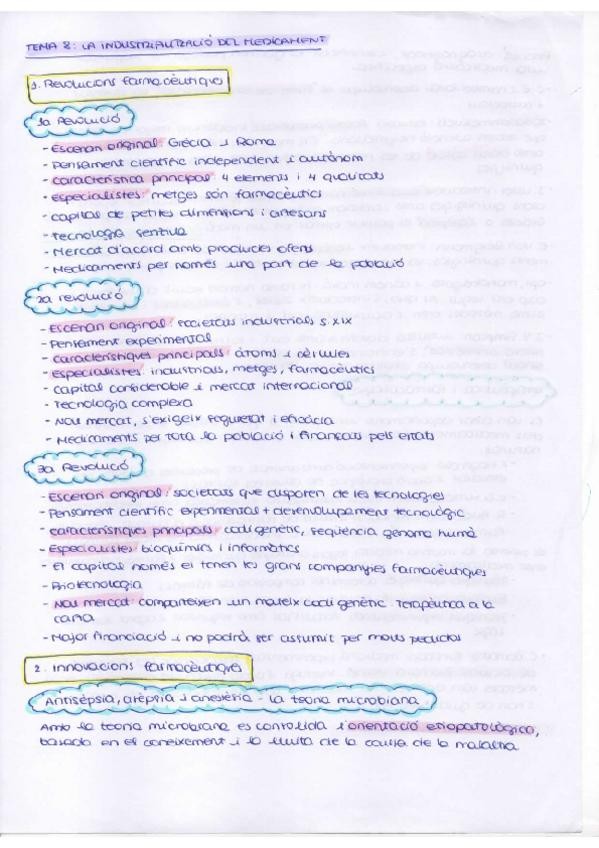 TEMA 8: LA INDUSTRIALITZACIÓ DEL MEDICAMENT
1. Revolucions farmacèutiques
1a Revolució
- Escenari original: Grècia i Roma
- Pensament científic independent i autònom
- característica principal: 4 elements i 4 qualitats
- especialistes: metges són farmacèutics
- capital de petites dimensions i artesans
- Tecnologia senzilla
- Mercat d'acord amb productes oferts
- Medicaments per només una part de la població
2a revolució
- Escenari original: societats industrials s. XIX
- Pensament experimental
- característiques principals: àtoms i cèl·lules
- especialistes: industrials, metges, farmacèutics
- Capital considerable i mercat internacional
- Tecnologia complexa
- Nou mercat, s'exigeix seguretat i eficàcia
- Medicaments per tota la població i finançats pels estats
3a Revolució
- Escenari original: societats que disposen de les tecnologies
- Pensament científic experimental + desenvolupament tecnològic
- característiques principals: codi genètic, seqüència genoma humà
- Especialistes: bioquímics i informàtics
- El capital només el tenen les grans companyies farmacèutiques
- Biotecnologia
- Nou mercat: comparteixen un mateix codi genètic. Terapèutica a la
carta
- Major financiació i no podrà ser assumit per molts
2. Innovacions farmacèutiques
Antisèpsia, asèpsia i anestèsia - la teoria microbiana
Amb la teoria microbiana es consolida l'orientació etiopatològica,
basada en el coneixement i la lluita de la causa de la malaltia